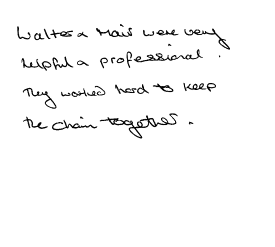 Walter & Mair were very
helpful & professional.
They worked hard to keep
the chain together.